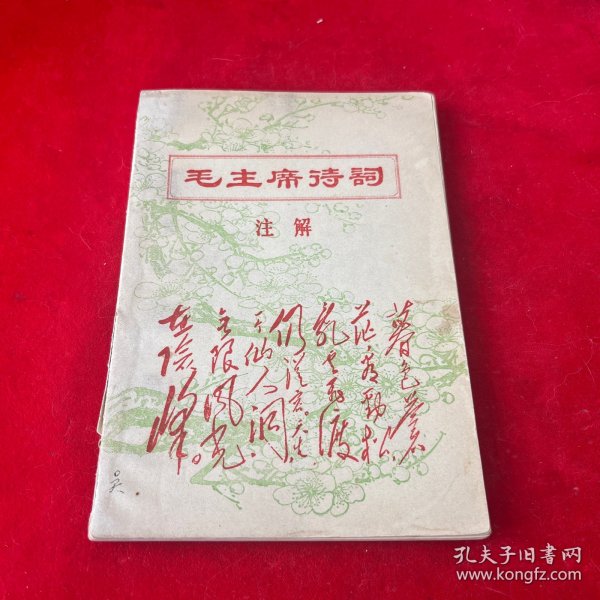 毛主席诗詞
注解
暮色蒼
茫看劲松
乱云飞渡
仍從容。天生
一个仙人洞
无限风光
在险峰。
吴
孔夫子旧书网
www.kongfz.com